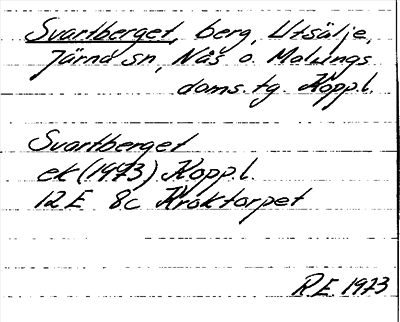 Svartberget, berg, Utsälje,
Järna sn, Nås o. Malungs
doms. tg. Kopp.l.
Svartberget
ek (1973) Kopp.l.
12 E 8c Kroktorpet
R.E. 1973